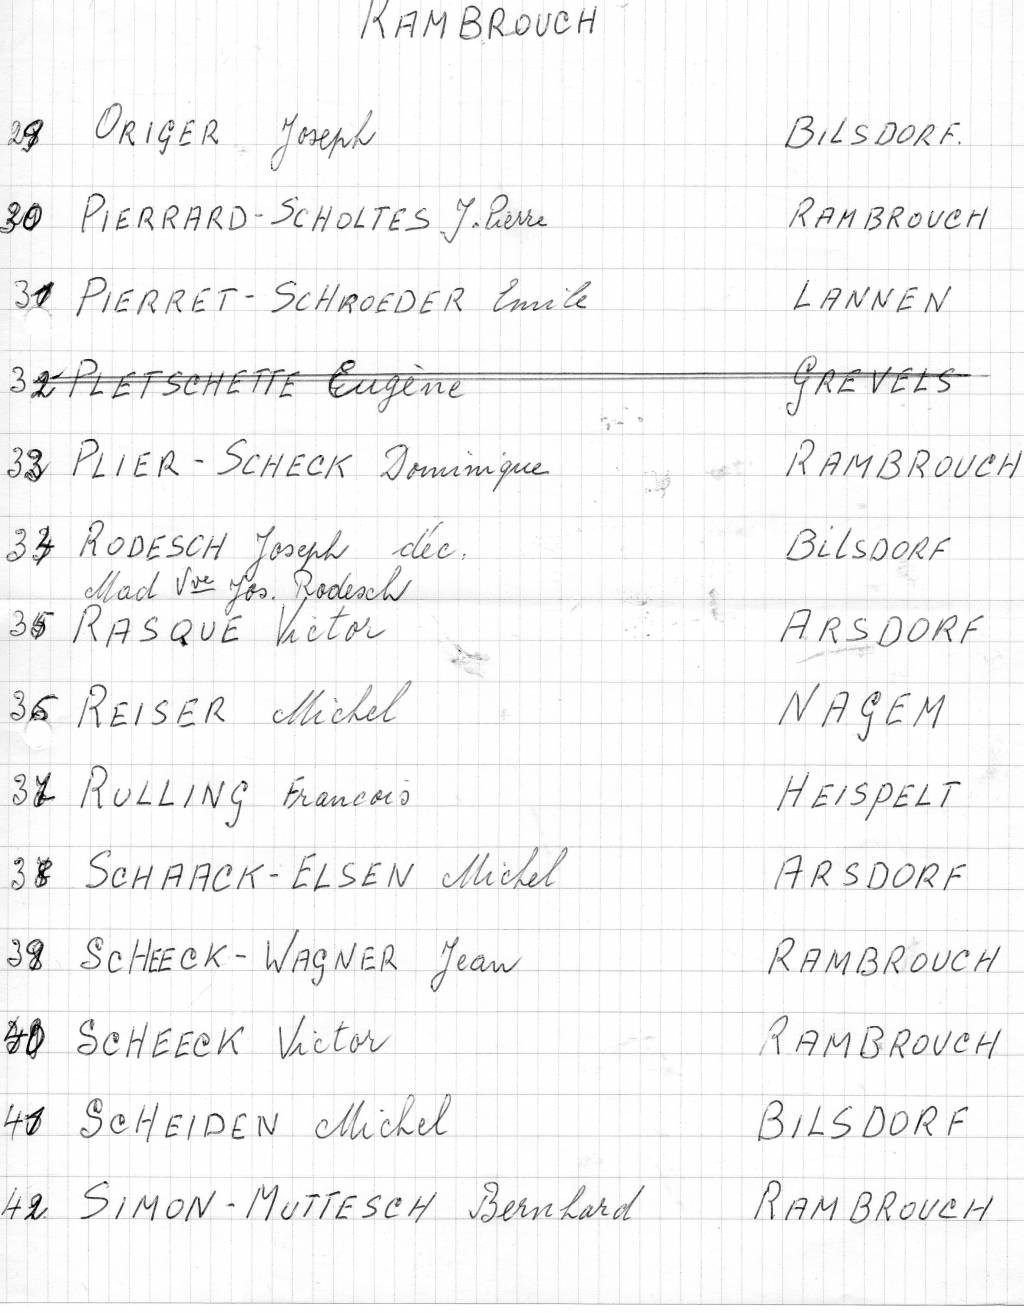 RAMBROUCH
29 ORIGER Joseph BILSDORF.
30 PIERRARD-SCHOLTES J. Pierre RAMBROUCH
31 PIERRET-SCHROEDER Emile LANNEN
32 PLETSCHETTE Eugène GREVELS
33 PLIER-SCHECK Dominique RAMBROUCH
34 RODESCH Joseph déc. BILSDORF
Mad Vve Jos. Rodesch
35 RASQUE Victor ARSDORF
36 REISER Michel NAGEM
37 RULLING Francois HEISPELT
38 SCHAACK-ELSEN Michel ARSDORF
39 SCHEECK-WAGNER Jean RAMBROUCH
40 SCHEECK Victor RAMBROUCH
41 SCHEIDEN Michel BILSDORF
42 SIMON-MUTTESCH Bernhard RAMBROUCH